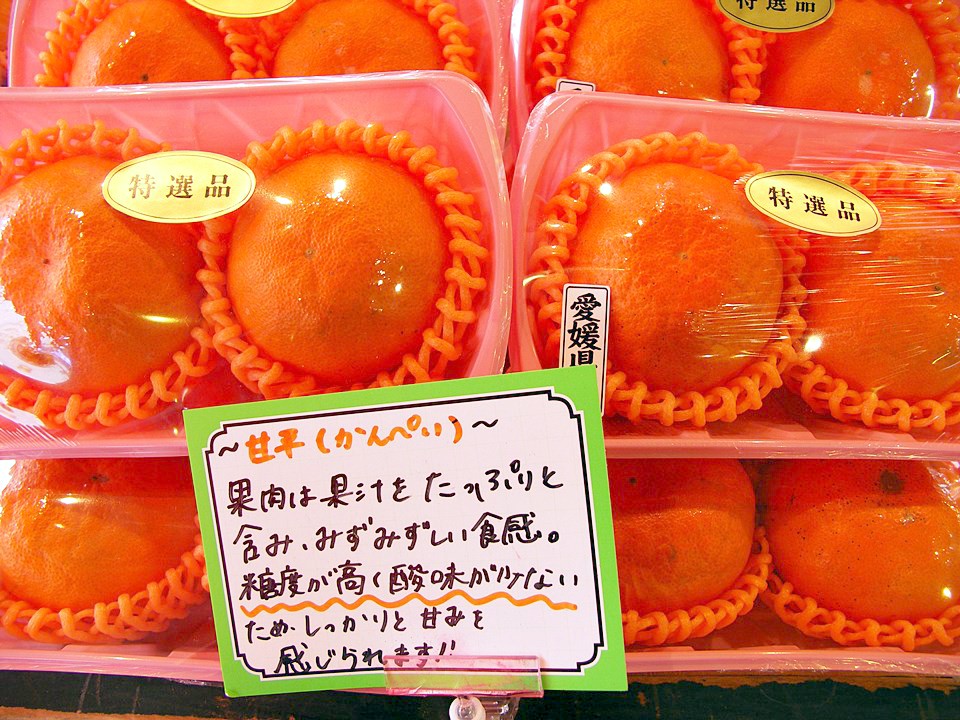 特選品
特選品
特選品
愛媛県
～甘平(かんぺい)～
果肉は果汁をたっぷりと
含み、みずみずしい食感。
糖度が高く酸味が少ない
ため、しっかりと甘みを
感じられます!!